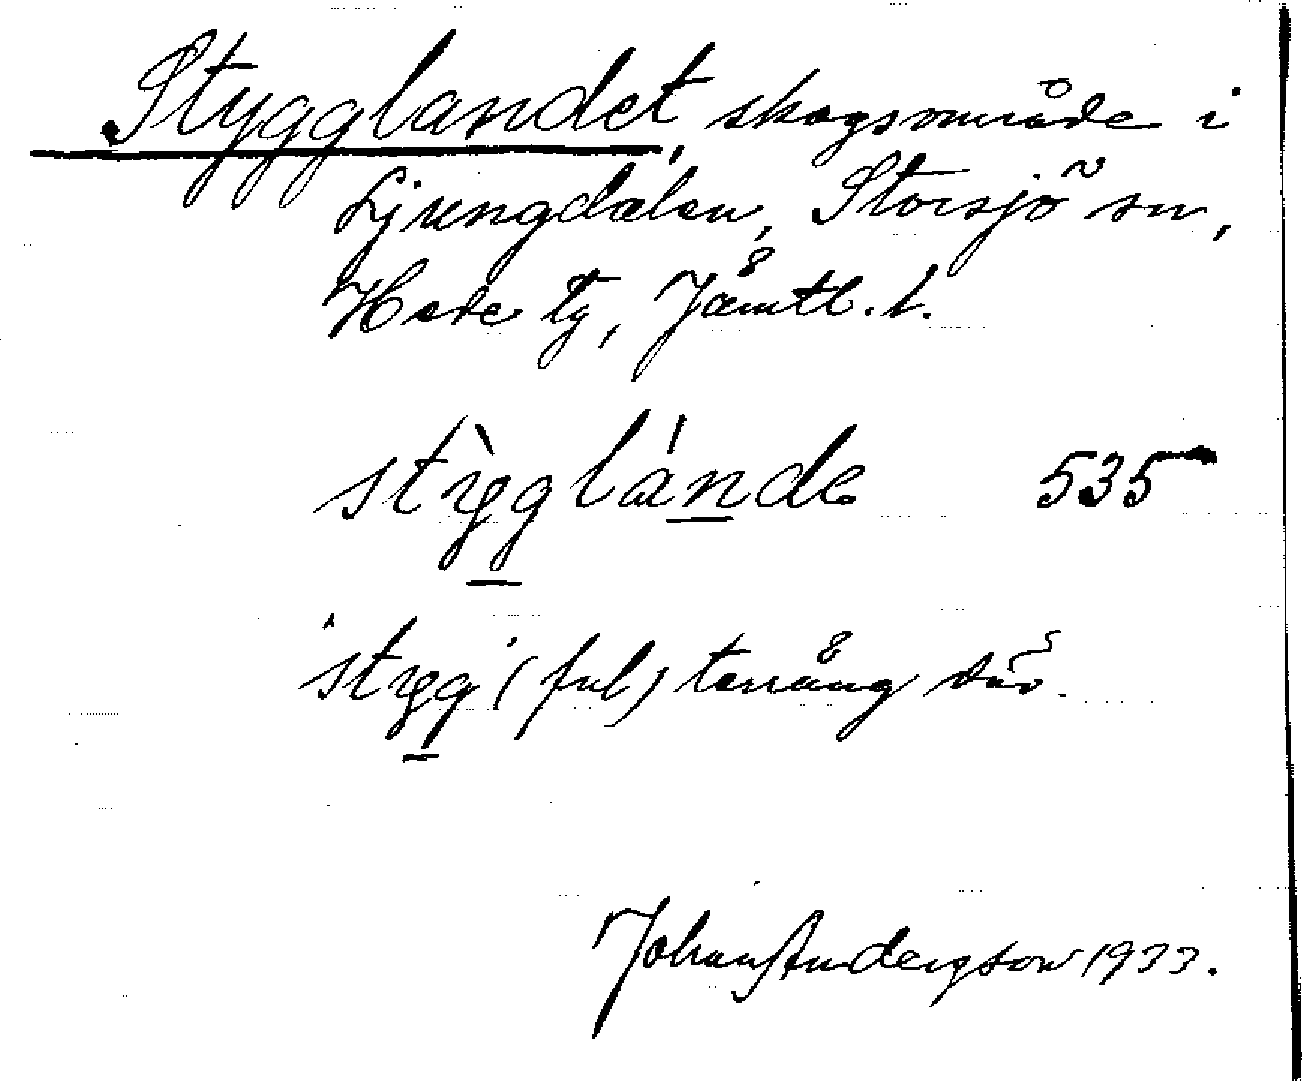 Stygglandet, skogsområde i
Ljungdalen, Storsjö sn,
Hede tg, Jämtl. l.
stỳgglánde 535
"stygg" (ful) terräng där.
Johan Andersson 1933.